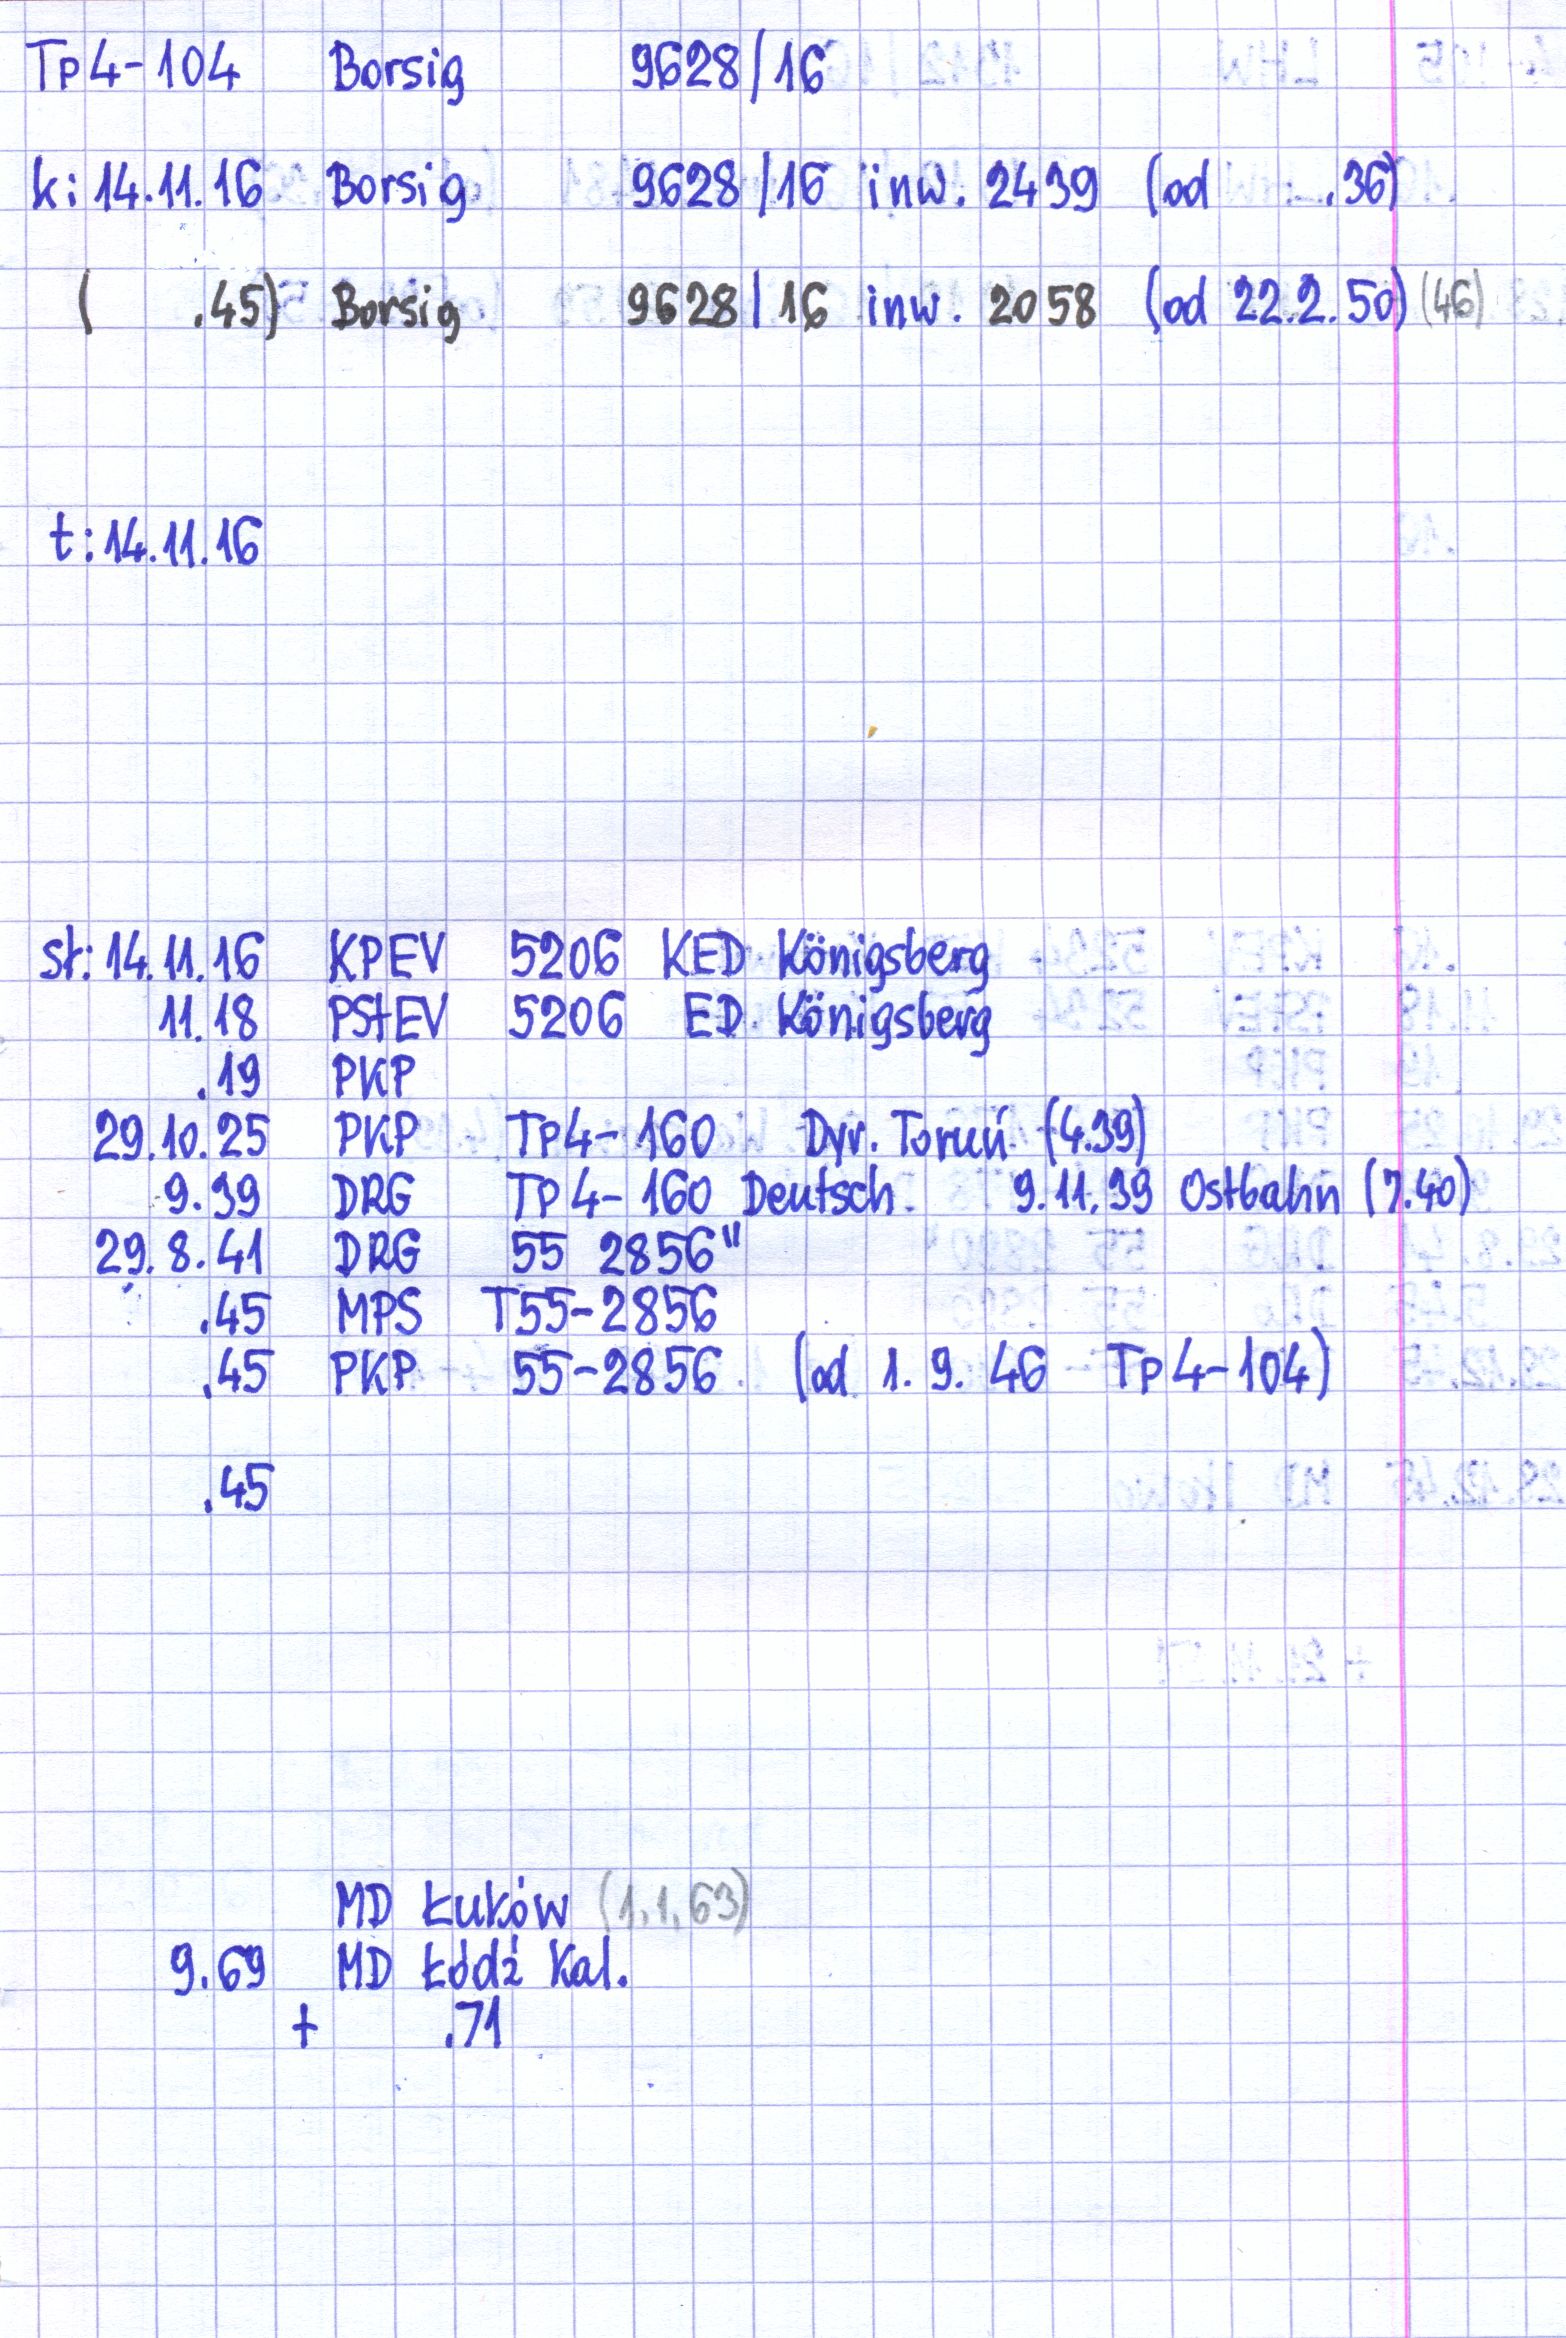 Tp4-104 Borsig 9628/16
k: 14.11.16 Borsig 9628/16 inw. 2439 (od .36)
( .45) Borsig 9628/16 inw. 2058 (od 22.2.50) (46)
t: 14.11.16
st: 14.11.16 KPEV 5206 KED Königsberg
11.18 PStEV 5206 ED Königsberg
.19 PKP
29.10.25 PKP Tp4-160 Dyr. Toruń (4.39)
9.39 DRG Tp4-160 Deutsch. 9.11.39 Ostbahn (7.40)
29.8.41 DRG 55 2856"
.45 MPS T55-2856
.45 PKP 55-2856 (od 1.9.46 Tp4-104)
.45
MD Łuków (1.1.63)
9.69 MD Łódź Kal.
+ .71